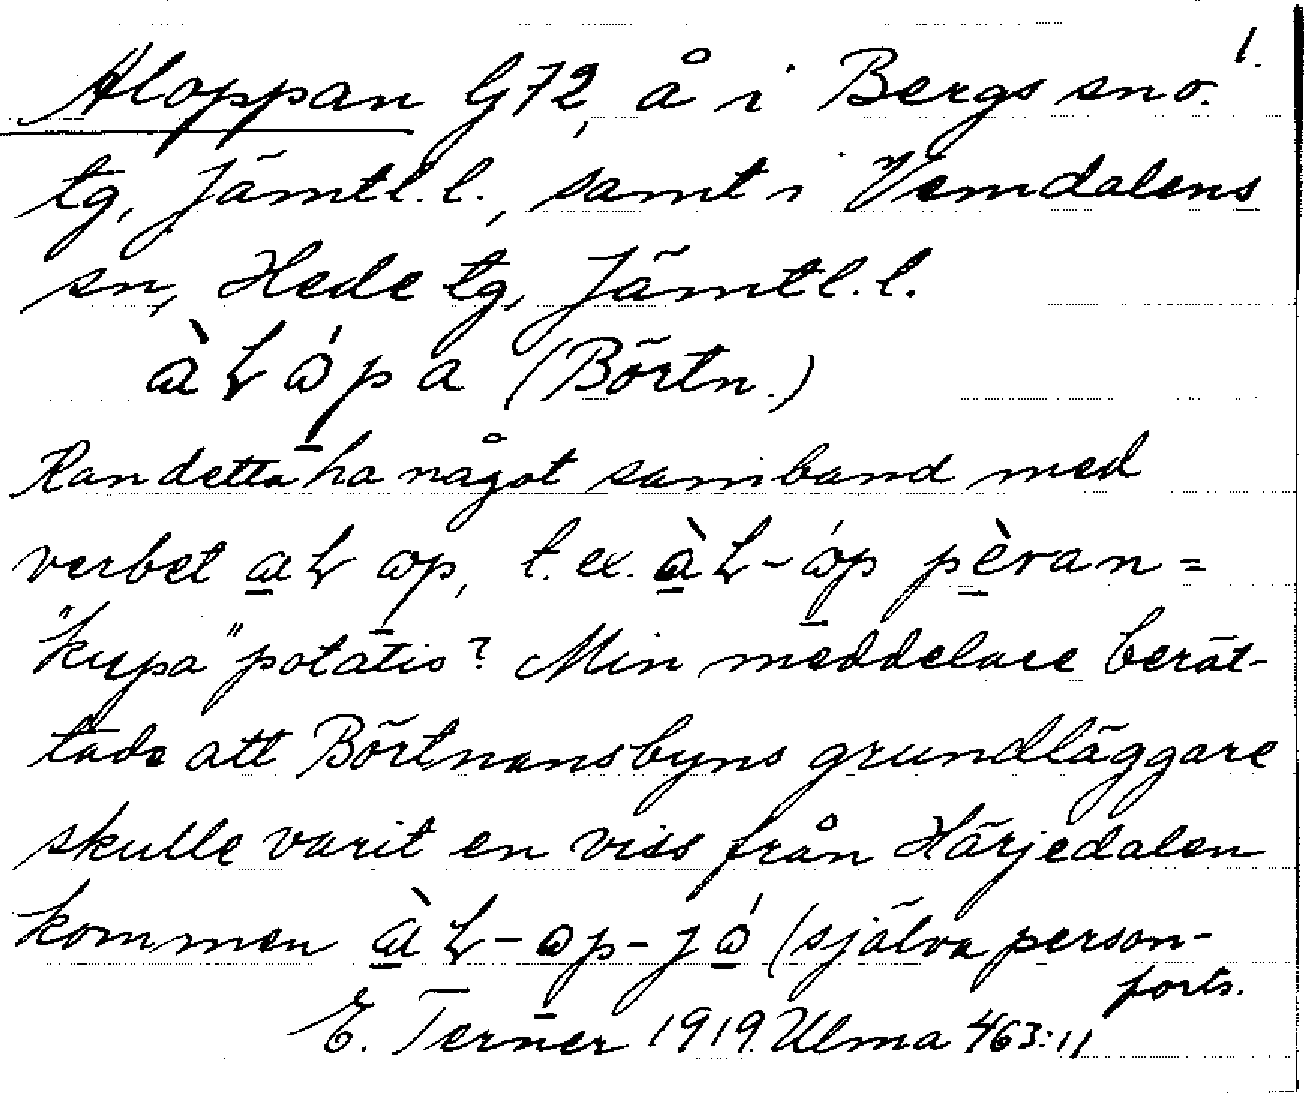 1.
Aloppan G72, å i Bergs sn o.
tg, Jämtl. l., samt i Vemdalens
sn, Hede tg, Jämtl. l.
(Börtn.)
Kan detta ha något samband med
verbet t. ex.
"kupa" potatis? Min meddelare berät-
tade att Börtnansbyns grundläggare
skulle varit en viss från Härjedalen
kommen (själva person-
forts.
E. Ternér 1919. Ulma 463:11